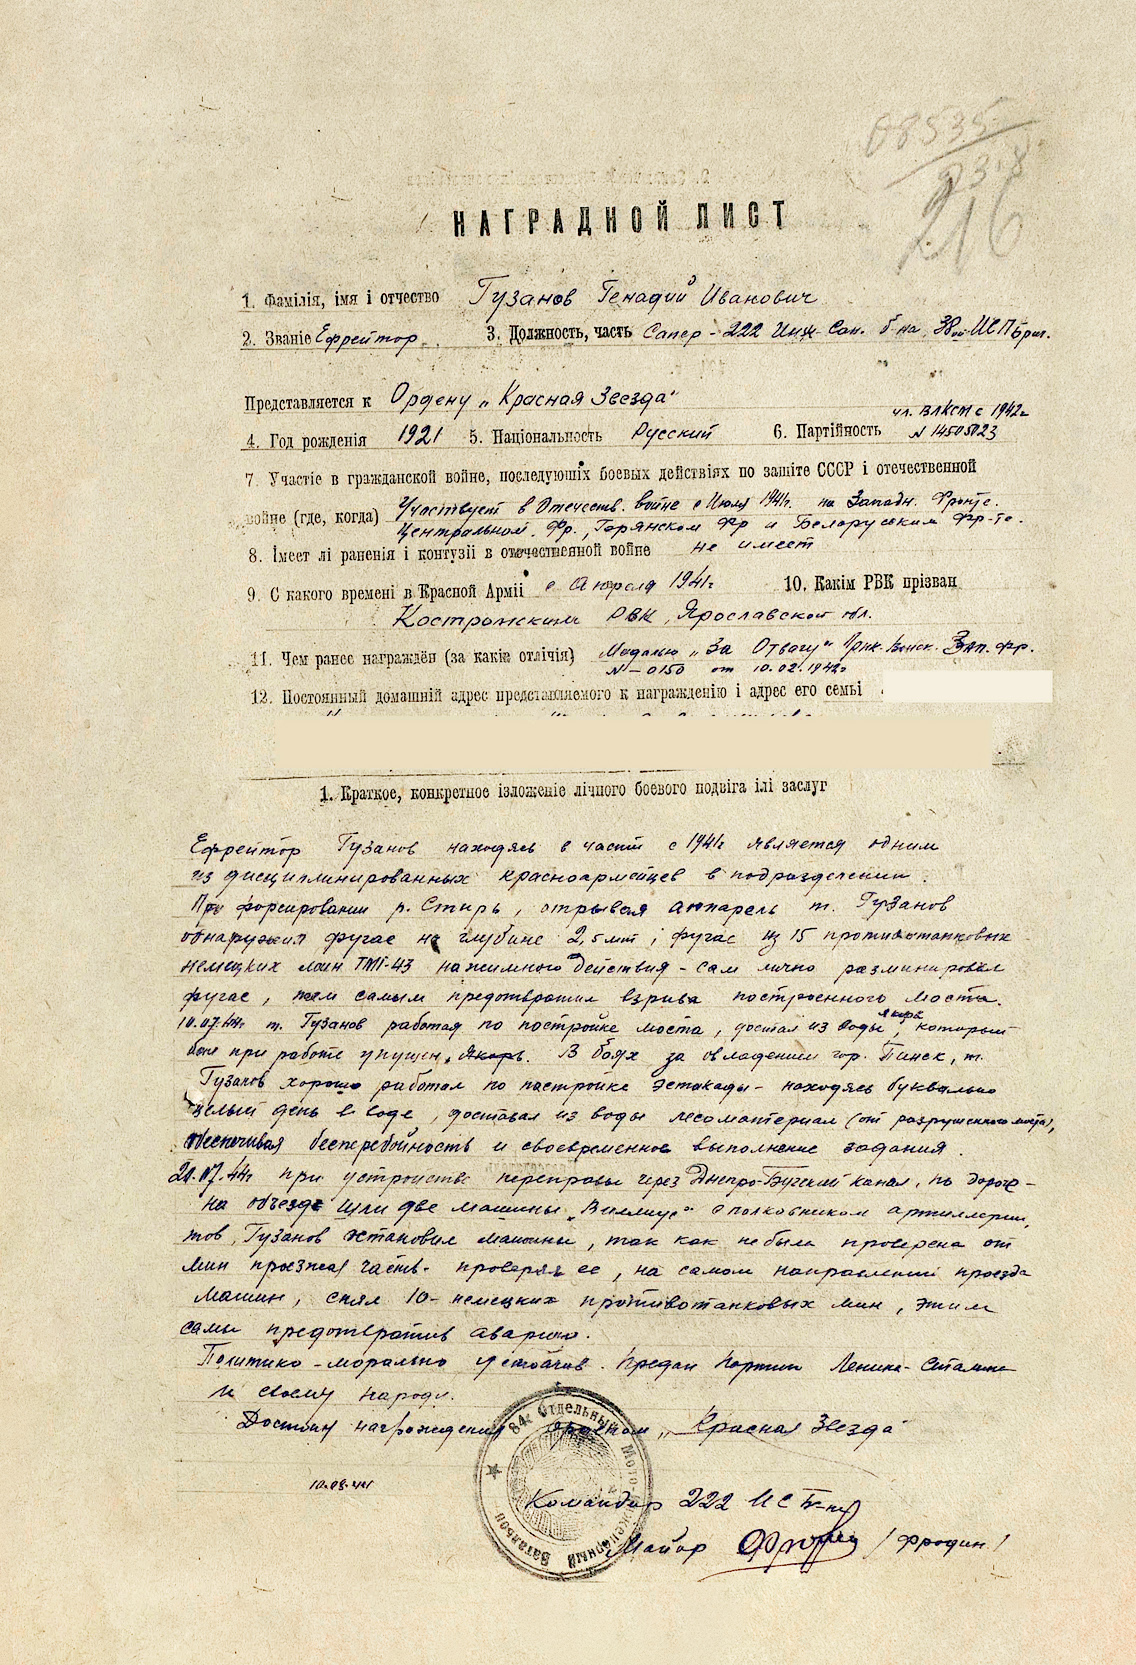 68535
216
НАГРАДНОЙ ЛИСТ
1. Фамілія, імя і отчество Гузанов Генадий Иванович
2. Званіе Ефрейтор 3. Должность, часть Сапер - 222 Инж. Сап. б-на, 38ой ИСПбриг.
Представляется к Ордену „Красная Звезда"
чл. ВЛКСМ с 1942г
4. Год рожденія 1921 5. Національность Русский 6. Партійность N 14505023
7. Участіе в гражданской войне, последующіх боевых действіях по защіте СССР і отечественной
войне (где, когда) Участвует в Отечеств. войне с Июля 1941г. на Западн. Фронте.
Центральном Фр., Фр и Белорусским Фр-те.
8. Імеет лі раненія і контузіі в отечественной войне не имеет
9. С какого времені в Красной Арміі с Апреля 1941г 10. Какім РВК прізван
Костромским РВК, Ярославской обл.
11. Чем ранее награждён (за какіе отлічія) Медалью „За Отвагу" Прик. Войск. Зап. Фр.
N - 0150 от 10.02.1942г
12. Постоянный домашній адрес представляемого к награжденію і адрес его семьі
1. Краткое, конкретное ізложеніе лічного боевого подвіга ілі заслуг
Ефрейтор Гузанов находясь в части с 1941г является одним
из дисциплинированных красноармейцев в подразделении.
При форсировании р. Стырь, отрывая аппарель т. Гузанов
обнаружил фугас на глубине 2,5 мт, фугас из 15 противотанковых
немецких мин ТМІ-43 нажимного действия - сам лично разминировал
фугас, тем самым предотвратил взрыв построенного моста.
10.07.44г т. Гузанов работая по постройке моста, достал из воды якорь, который
был при работе упущен, якорь. В боях за овладении гор. Пинск, т.
Гузанов хорошо работал по пастройке эстакады - находясь буквально
целый день в воде, доставал из воды лесоматериал (от разрушенного моста),
обеспечивая бесперебойность и своевременное выполнение задания.
20.07.44г при устройстве переправы через Днепро-Бугский канал, по дороге -
на объезде шли две машины „Виллис" с полковником артиллерии,
тов. Гузанов остановил машины, так как не была проверена от
мин проезжая часть. проверяя ее, на самом направлении проезда
машин, снял 10 - немецких противотанковых мин, этим
самым предотвратив аварию.
Политико - морально устойчив. Предан Партии Ленина - Сталина
и своему народу.
Достоин награждения орденом „Красная Звезда"
84й Отдельный Мото-Инженерный Батальон
10.08.44г
Командир 222 ИСБ-на
Майор /Фродин/